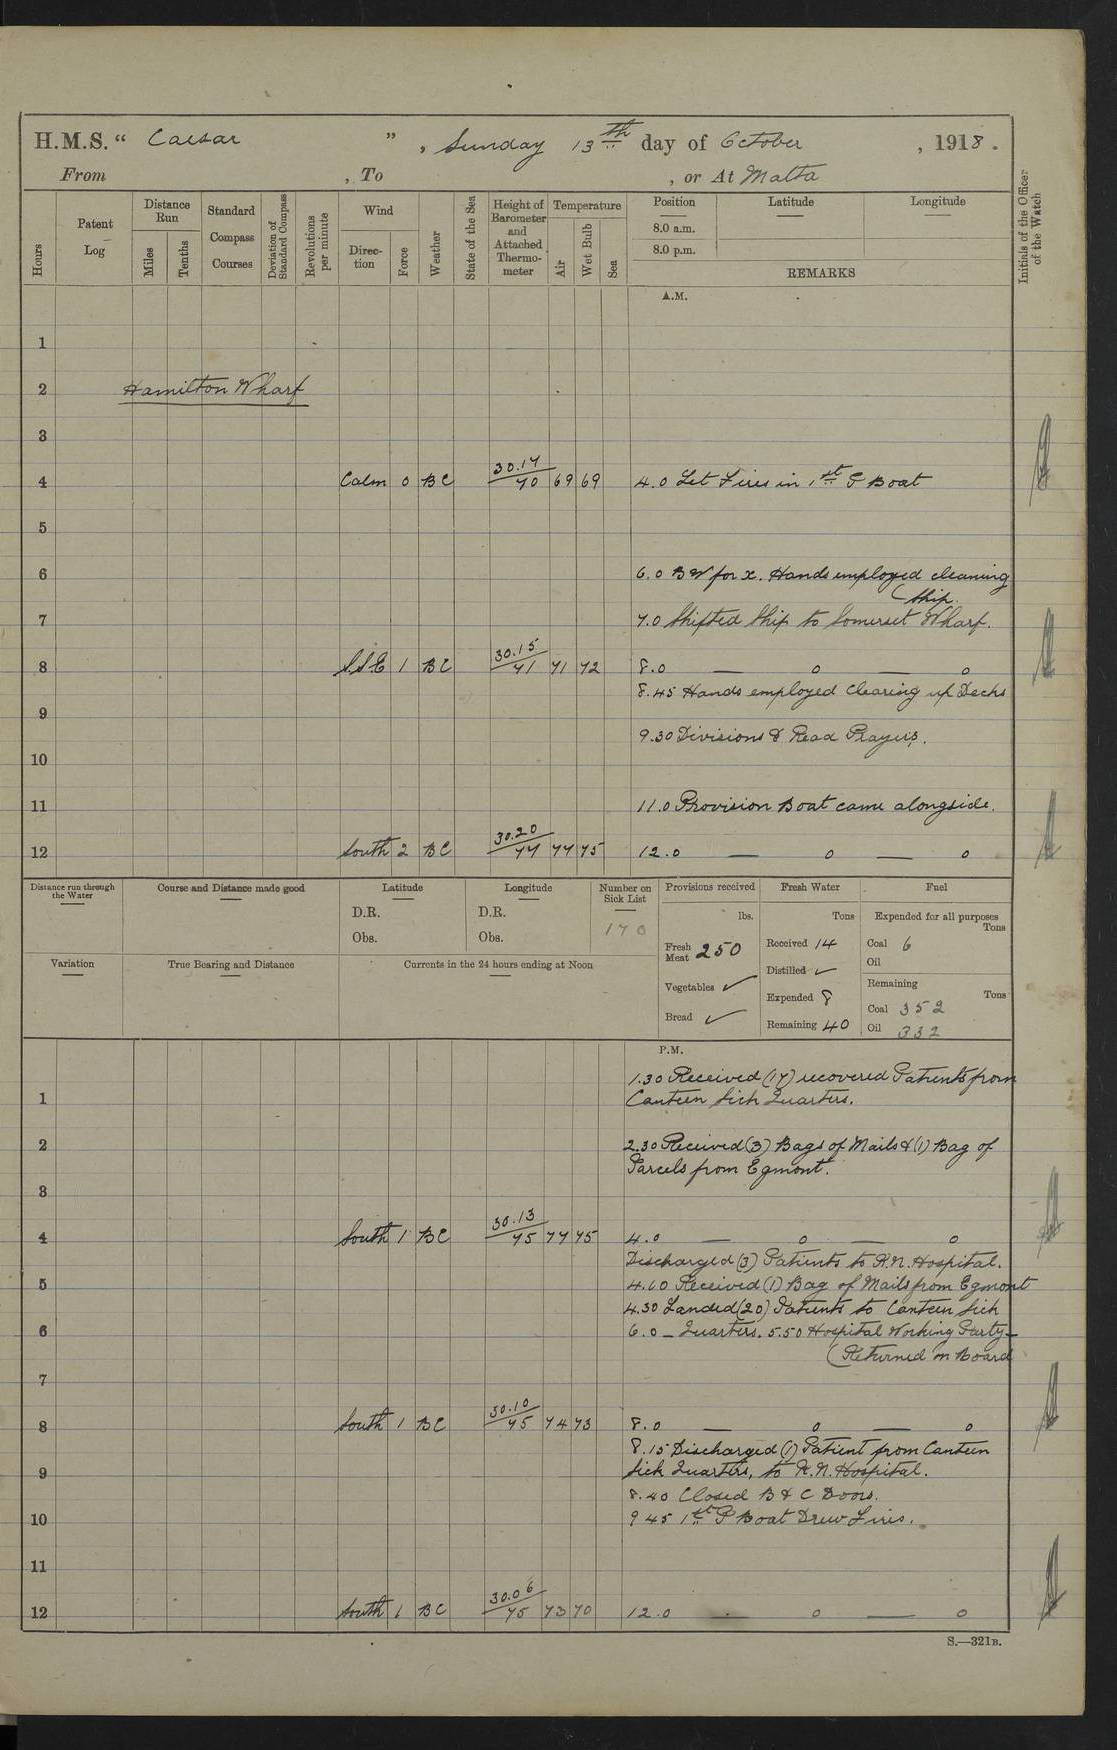 H.M.S. “ Caesar ” , Sunday 13th day of October , 1918 .
From , To , or At Malta
Hours
Patent Log
Distance Run
Miles
Tenths
Standard Compass Courses
Deviation of Standard Compass
Revolutions per minute
Wind
Direc-tion
Force
Weather
State of the Sea
Height of Barometer and Attached Thermo-meter
Temperature
Air
Wet Bulb
Sea
Position
8.0 a.m.
8.0 p.m.
Latitude
Longitude
REMARKS
Initials of the Officer of the Watch
A.M.
1
2 Hamilton Wharf
3
4 Calm 0 BC 30.17 70 69 69 4.0 Let Fires in 1st P Boat
5
6 6.0 BW for x. Hands employed cleaning
(Ship.
7 7.0 Shifted Ship to Somerset Wharf.
8 SSE 1 BC 30.15 71 71 72 8.0 — 0 — 0
8.45 Hands employed Clearing up Decks
9
9.30 Divisions & Read Prayers.
10
11 11.0 Provision Boat came alongside.
12 South 2 BC 30.20 77 77 75 12.0 — 0 — 0
Distance run through the Water
Course and Distance made good
Latitude
D.R.
Obs.
Longitude
D.R.
Obs.
Number on Sick List
170
Provisions received
lbs.
Fresh Meat 250
Vegetables ✓
Bread ✓
Fresh Water
Tons
Received 14
Distilled ✓
Expended 8
Remaining 40
Fuel
Expended for all purposes
Tons
Coal 6
Oil
Remaining
Tons
Coal 352
Oil 332
Variation
True Bearing and Distance
Currents in the 24 hours ending at Noon
P.M.
1.30 Received (17) recovered Patients from
1 Canteen Sick Quarters.
2 2.30 Received (3) Bags of Mails & (1) Bag of
Parcels from Egmont.
3
4 South 1 BC 30.13 75 77 75 4.0 — 0 — 0
Discharged (3) Patients to R.N. Hospital.
5 4.10 Received (1) Bag of Mails from Egmont
4.30 Landed (20) Patients to Canteen Sick
6 6.0 — Quarters. 5.50 Hospital Working Party —
(Returned on Board
7
8 South 1 BC 30.10 75 74 73 8.0 — 0 — 0
8.15 Discharged (1) Patient from Canteen
9 Sick Quarters, to R.N. Hospital.
8.40 Closed B & C Doors.
10 9 45 1st P Boat Drew Fires.
11
12 South 1 BC 30.06 75 73 70 12.0 — 0 — 0
S.—321B.